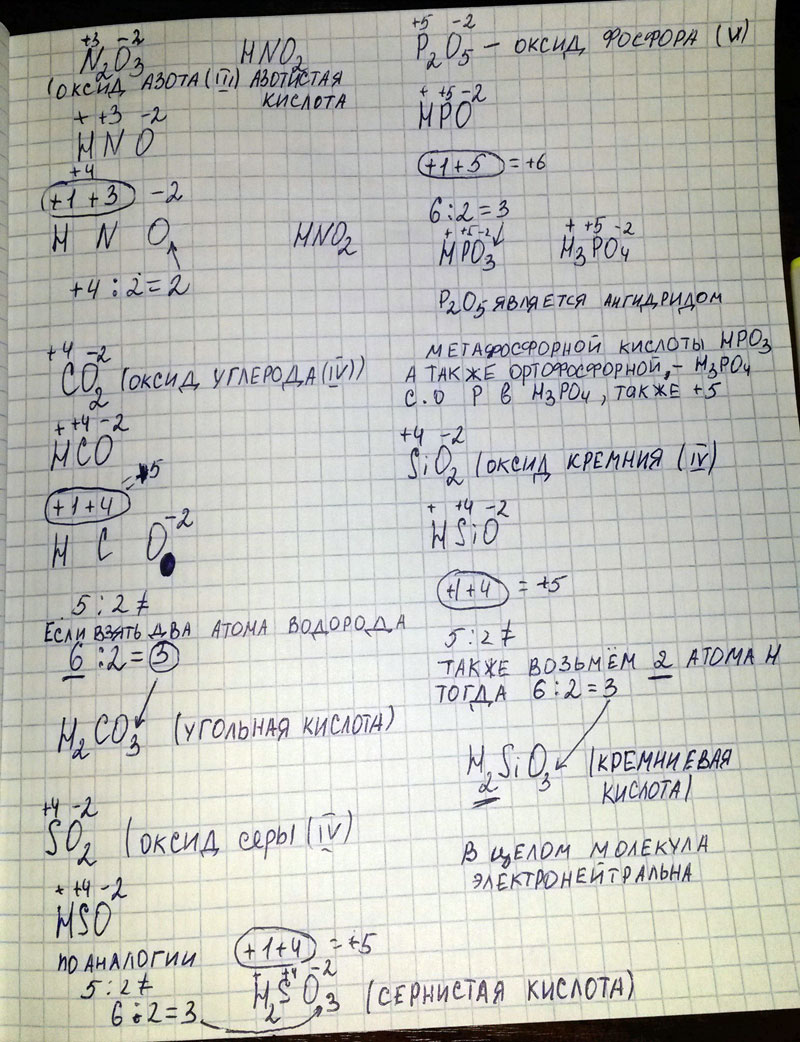 +3 -2
N₂O₃ HNO₂
(ОКСИД АЗОТА (III) АЗОТИСТАЯ
КИСЛОТА
+ +3 -2
H N O
+4
+1+3 -2
H N O
+4:2=2
HNO₂
+4 -2
CO₂ (ОКСИД УГЛЕРОДА (IV))
+ +4 -2
HCO
+1+4 =+5
H C O⁻²
5:2≠
ЕСЛИ ВЗЯТЬ ДВА АТОМА ВОДОРОДА
6:2=3
H₂CO₃ (УГОЛЬНАЯ КИСЛОТА)
+4 -2
SO₂ (ОКСИД серы (IV)
+ +4 -2
HSO
ПО АНАЛОГИИ
5:2≠
6:2=3
+1+4 =+5
+ +4 -2
H₂SO₃ (СЕРНИСТАЯ КИСЛОТА)
+5 -2
P₂O₅ – ОКСИД ФОСФОРА (V)
+ +5 -2
HPO
+1+5 =+6
6:2=3
+ +5 -2 + +5 -2
HPO₃ H₃PO₄
P₂O₅ ЯВЛЯЕТСЯ АНГИДРИДОМ
МЕТАФОСФОРНОЙ КИСЛОТЫ HPO₃
А ТАКЖЕ ОРТОФОСФОРНОЙ, – H₃PO₄
С.О P В H₃PO₄, ТАКЖЕ +5
+4 -2
SiO₂ (ОКСИД КРЕМНИЯ (IV)
+ +4 -2
HSiO
+1+4 =+5
5:2≠
ТАКЖЕ ВОЗЬМЁМ 2 АТОМА H
ТОГДА 6:2=3
H₂SiO₃ (КРЕМНИЕВАЯ
КИСЛОТА)
В ЦЕЛОМ МОЛЕКУЛА
ЭЛЕКТРОНЕЙТРАЛЬНА